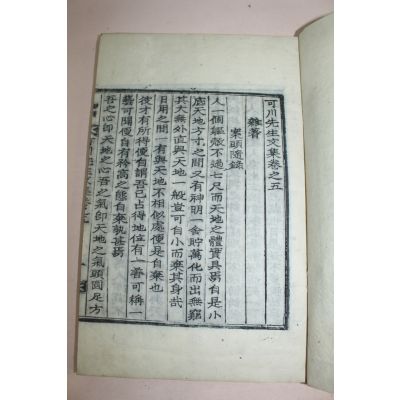 可川先生文集卷之五
雜著
案頭隨錄
人一個軀殼不過七尺而天地之體實具焉自是小
底天地方寸之間又有神明一舍貯萬化而出無窮
其大無外直與天地一般豈可自小而棄其身哉
日用之間一有與天地不相似處便是自棄也
彼才有所得便自謂吾已占得地位有一善可稱一
藝可聞便自有矜高之態自棄孰甚焉
吾之心即天地之心吾之氣即天地之氣頭圓足方